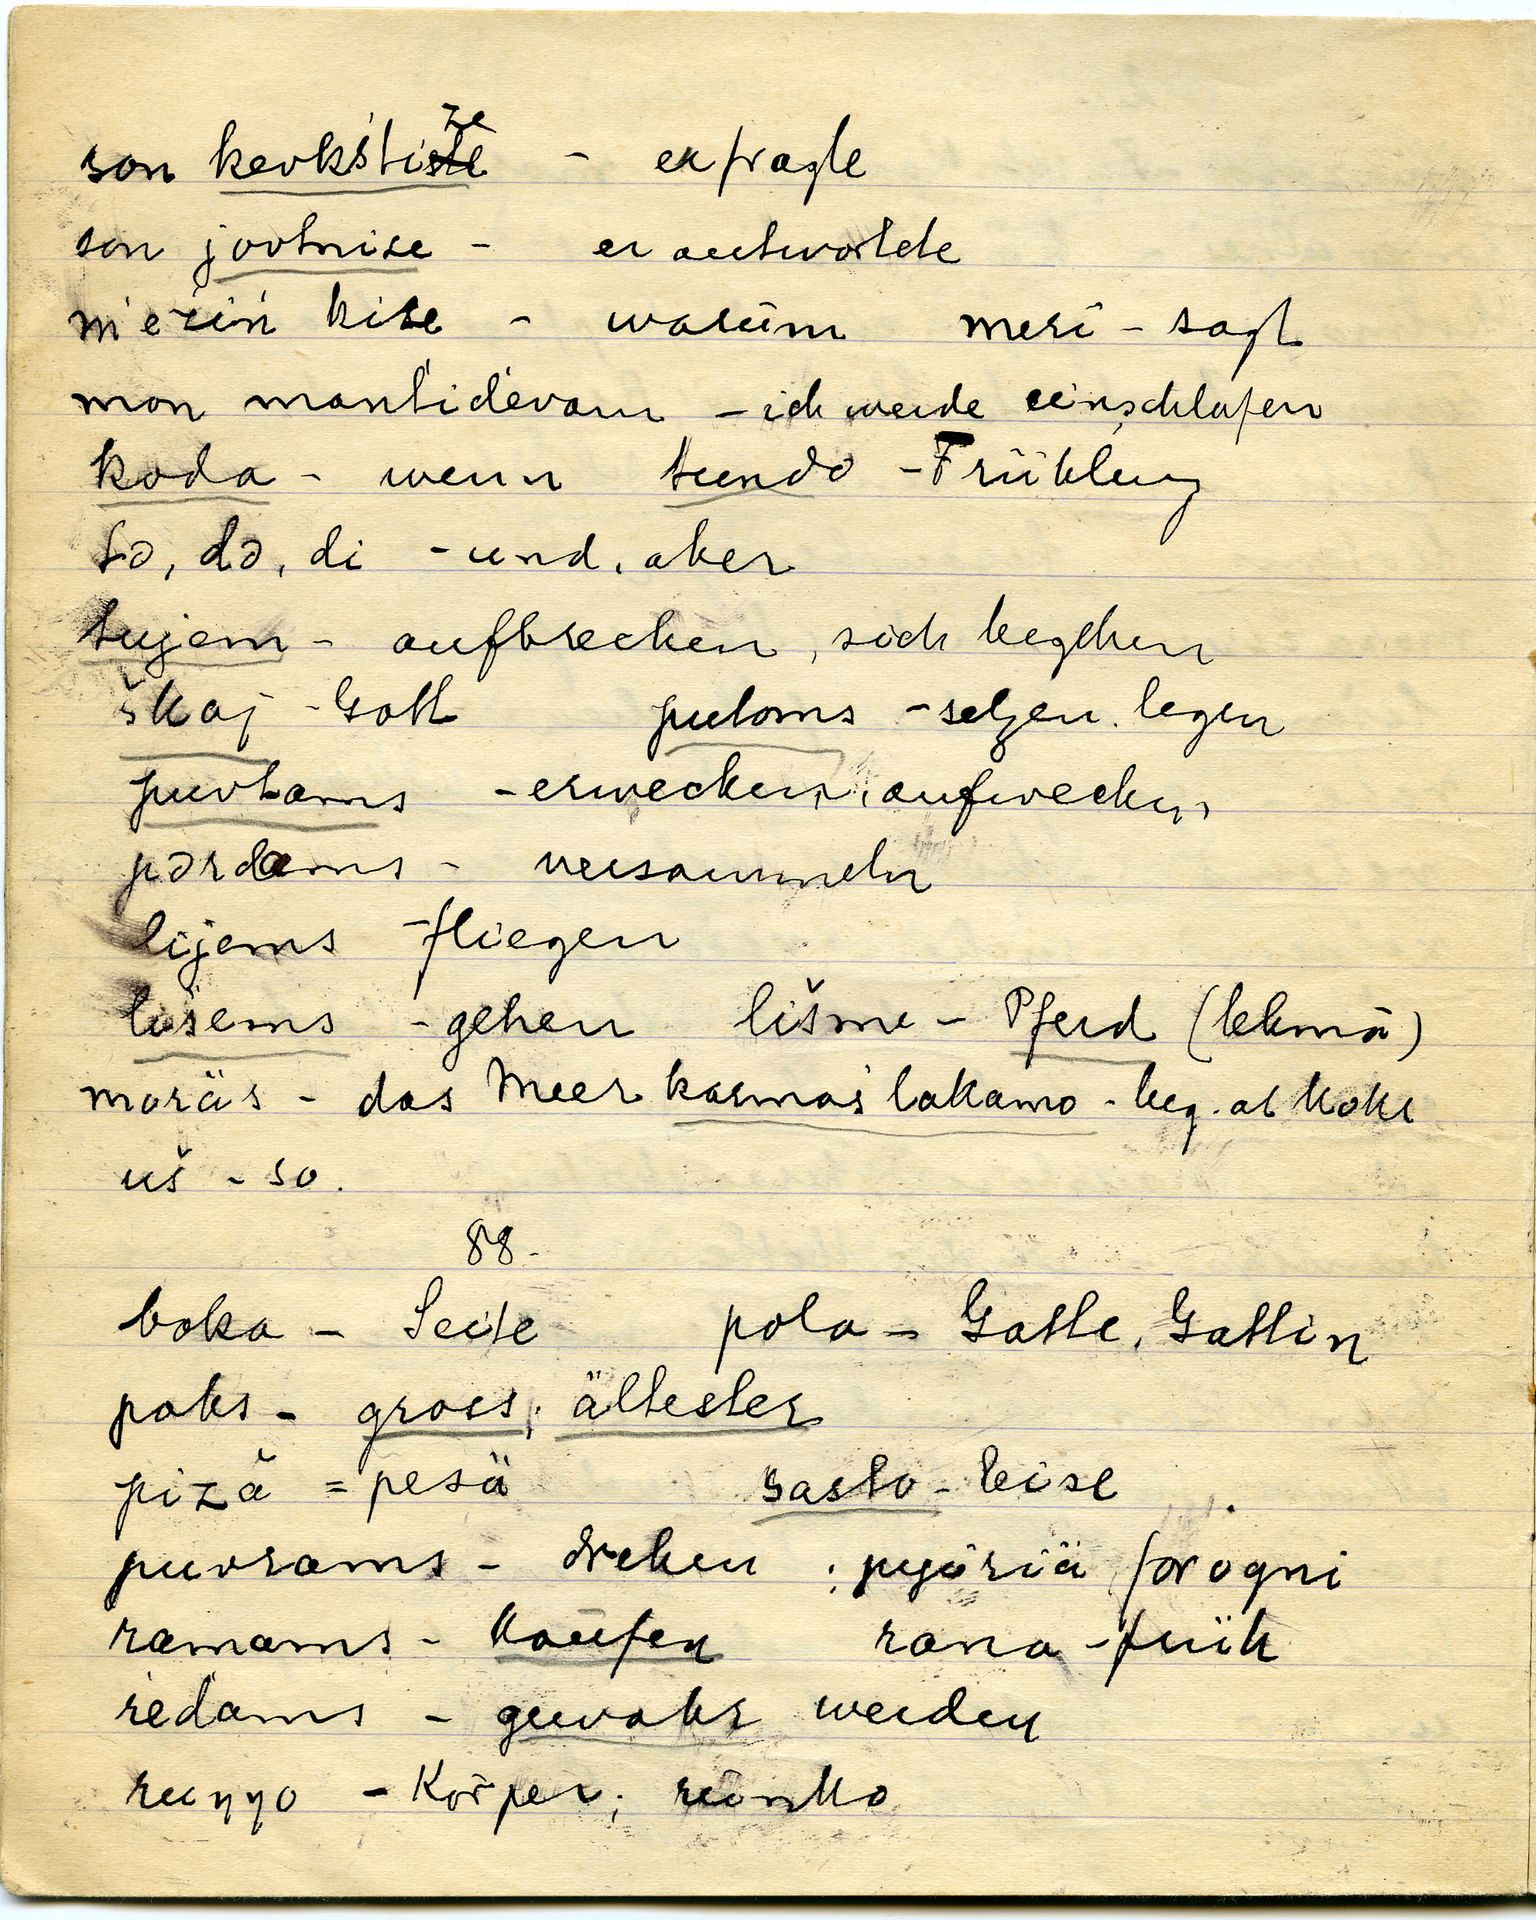 son kevkśtize - er fragte
son jovtnize - er antwortete
meŕiń kise - warum meŕi - sagt
mon mantidevan - ich werde einschlafen
koda - wenn tundo - Frühling
tə, də, di - und, aber
tujem - aufbrechen, sich begeben
škaj - Gott putoms - setzen, legen
puvtams - erwecken, aufwecken
pərdams - versammeln
lijems - fliegen
lisems - gehen lišme - Pferd (lehmä)
moräs - das Meer kosmos lakamo -
uš - so.
88.
boka - Seite pola - Gatte, Gattin
poks - gross, ältester
pizä = pesä sasto - leise
puvrams - drehen ; pyöriä forogni
ramams - kaufen rana - früh
ŕedams - gewahr werden
ruŋgo - Körper; runko